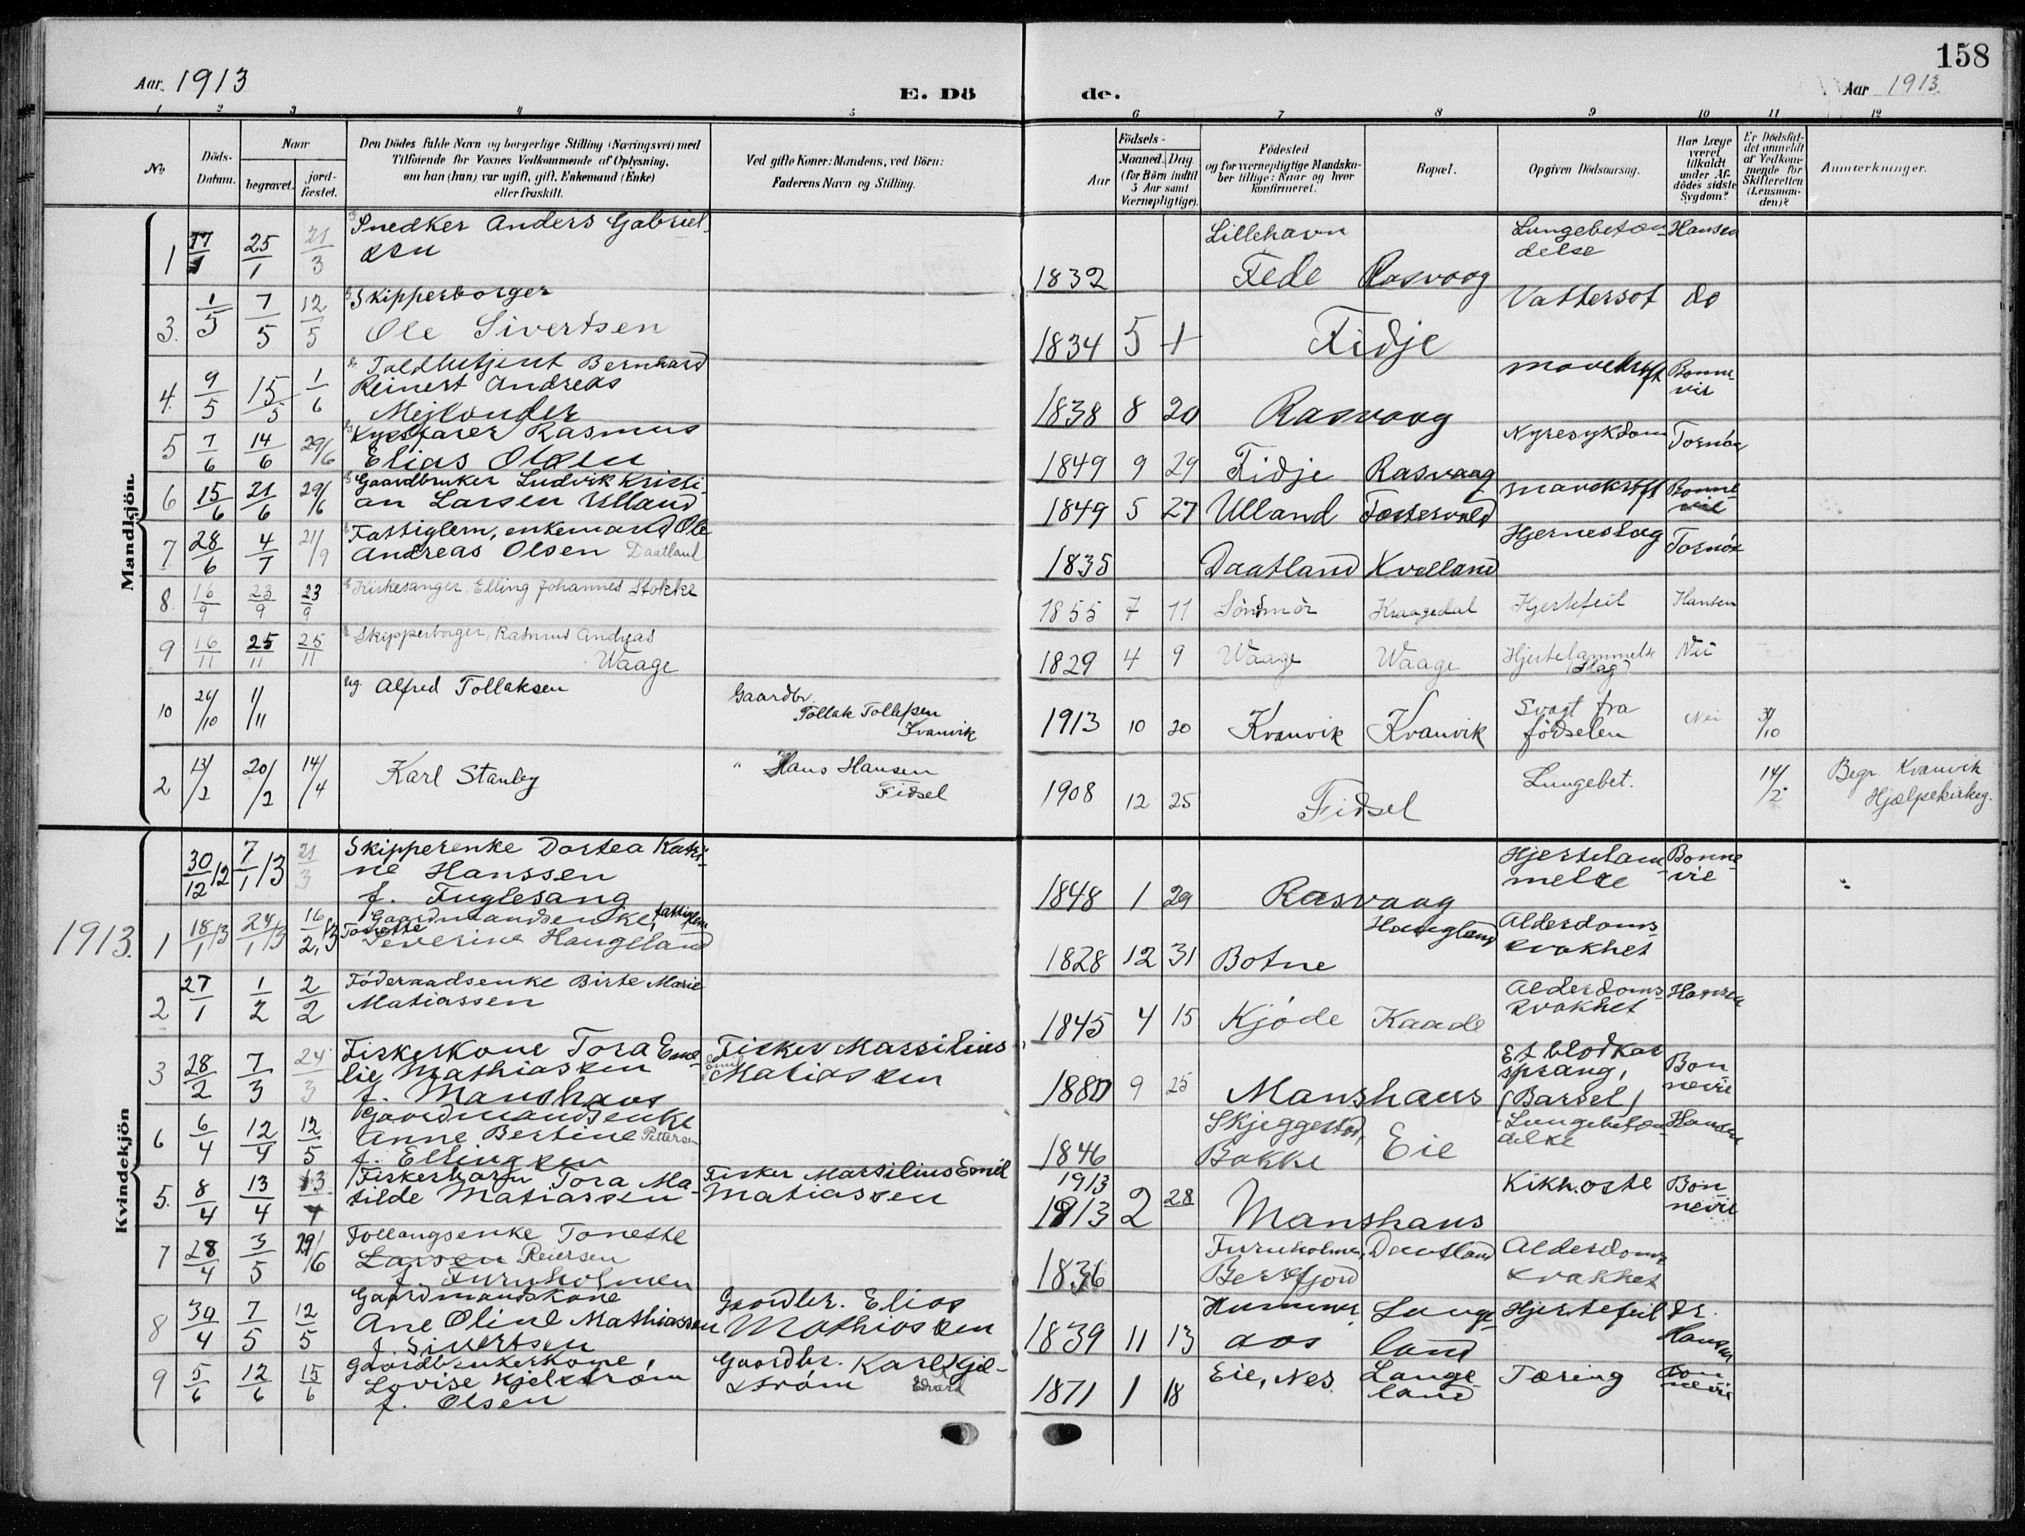 158
Aar 1913
E. Dö
de.
Aar 1913
1 2 3 4 5 6 7 8 9 10 11 12
No
Döds-Datum.
Naar
begravet.
jord-fæstet.
Den Dödes fulde Navn og borgerlige Stilling (Næringsvei) med
Tilföiende for Voxnes Vedkommende af Oplysning,
om han (hun) var ugift, gift, Enkemand (Enke)
eller fraskilt.
Ved gifte Koner: Mandens, ved Börn:
Faderens Navn og Stilling.
Födsels-
Aar
Maaned. Dag.
(for Börn indtil
5 Aar samt
Værnepligtige).
Födested
og for værnepligtige Mandska-
ber tillige: Naar og hvor
konfirmeret.
Bopæl.
Opgiven Dödsaarsag.
Har Læge
været
tilkaldt
under Af-
dödes sidste
Sygdom?
Er Dödsfal-
det anmeldt
af Vedkom-
mende for
Skifteretten
(Lensman-
den)?
Anmerkninger.
Mandkjön.
1 17/1 25/1 21/3 Snedker Anders Gabriel-
sen
1832 Lillehavn
Fede Rasvaag Lungebetæn-
delse Hansen
3. 1/5 7/5 12/5 Skipperborger
Ole Sivertsen
1834 5 1 Fidje Vattersot do
4. 9/5 15/5 1/6 Toldbetjent Bernhard
Reinert Andreas
Mejlonder
1838 8 20 Rasvaag Mavekræft Bonne-
vie
5 7/6 14/6 29/6 Rasmus
Elias Olsen
1849 9 29 Fidje Rasvaag Nyresykdom Tornöe
6 15/6 21/6 29/6 Gaardbruker Ludvik Kristi-
an Larsen Ulland
1849 5 27 Ulland Mavekræft Bonne-
vie
7. 28/6 4/7 21/9 Fattiglem, enkemand Ole
Andreas Olsen Daatland
1835 Daatland Kvelland Hjerneslag Tornöe
8. 16/9 23/9 23/9 Kirkesanger, Elling Johannes Stokke
1855 7 11 Söndmör Kraagedal Hjertefeil Hansen
9 16/11 25/11 25/11 Skipperborger, Rasmus Andreas
Waage
1829 4 9 Waage Waage Hjertelammelse
(Slag) Nei
10 26/10 1/11 ug. Alfred Tollaksen Gaardbr.
Tollak Tollefsen
Kvanvik
1913 10 20 Kvanvik Kvanvik Svagt fra
födselen Nei 31/10
2 13/2 20/2 14/4 Karl Stanley " Hans Hansen
Fidsel
1908 12 25 Fidsel Lungebet. 14/2 Begr. Kvanvik
Hjælpekirkeg.
Kvindekjön
30/12 12 7/1 13 21/3 Skipperenke Dortea Katri-
ne Hanssen
f. Fuglesang
1848 1 29 Rasvaag Hjertelam-
melse Bonne-
vie
1913. 1 18/1 13 24/1 13 16/2 13 Gaardmandsenke, fattiglem
Tonette
Severine Haugeland
1828 12 31 Botne Haugland Alderdoms-
svakhet
2 27/1 1/2 2/2 Föderaadsenke Birte Marie
Matiassen
1845 4 15 Kjöde Kaade Alderdoms-
svakhet Hansen
3 28/2 7/3 24/3 Fiskerkone Tora Emi-
lie Mathiassen
f. Manshaus Fisker Marsilius
Emil
Matiassen
1880 9 25 Manshaus Et blodkar
sprang,
(Barsel) Bon
nevie
6 6/4 12/4 12/5 Gaardmandsenke
Anne Bertine Pettersen
f. Ellingsen
1846 Skjeggestad,
Bakke Eie Lungebetæn-
delse Hansen
5. 8/4 13/4 13/4 Fiskerbarn Tora Ma-
tilde Matiassen Fisker Marsilius Emil
Matiassen
1913
1913 2 28 Manshaus Kikhoste Bon
nevie
7 28/4 3/5 29/6 Follaugsenke Tonette
Larsen Reiersen
f. Furuholmen
1836 Furuholmen,
Bersefjord Daatland Alderdoms-
svakhet
8 30/4 7/5 12/5 Gaardmandskone
Ane Oline Mathiassen
f. Sivertsen Gaardbr. Elias
Mathiassen
1839 11 13 Hummer-
aas Lange-
land Hjertefeil dr.
Hansen
9 5/6 12/6 15/6 Gaardbrukerkone,
Lovise Kjelström
f. Olsen Gaardbr. Karl Kjel-
ström Edvard
1871 1 18 Eie, Nes Lange
land Tæring Bon
nevie